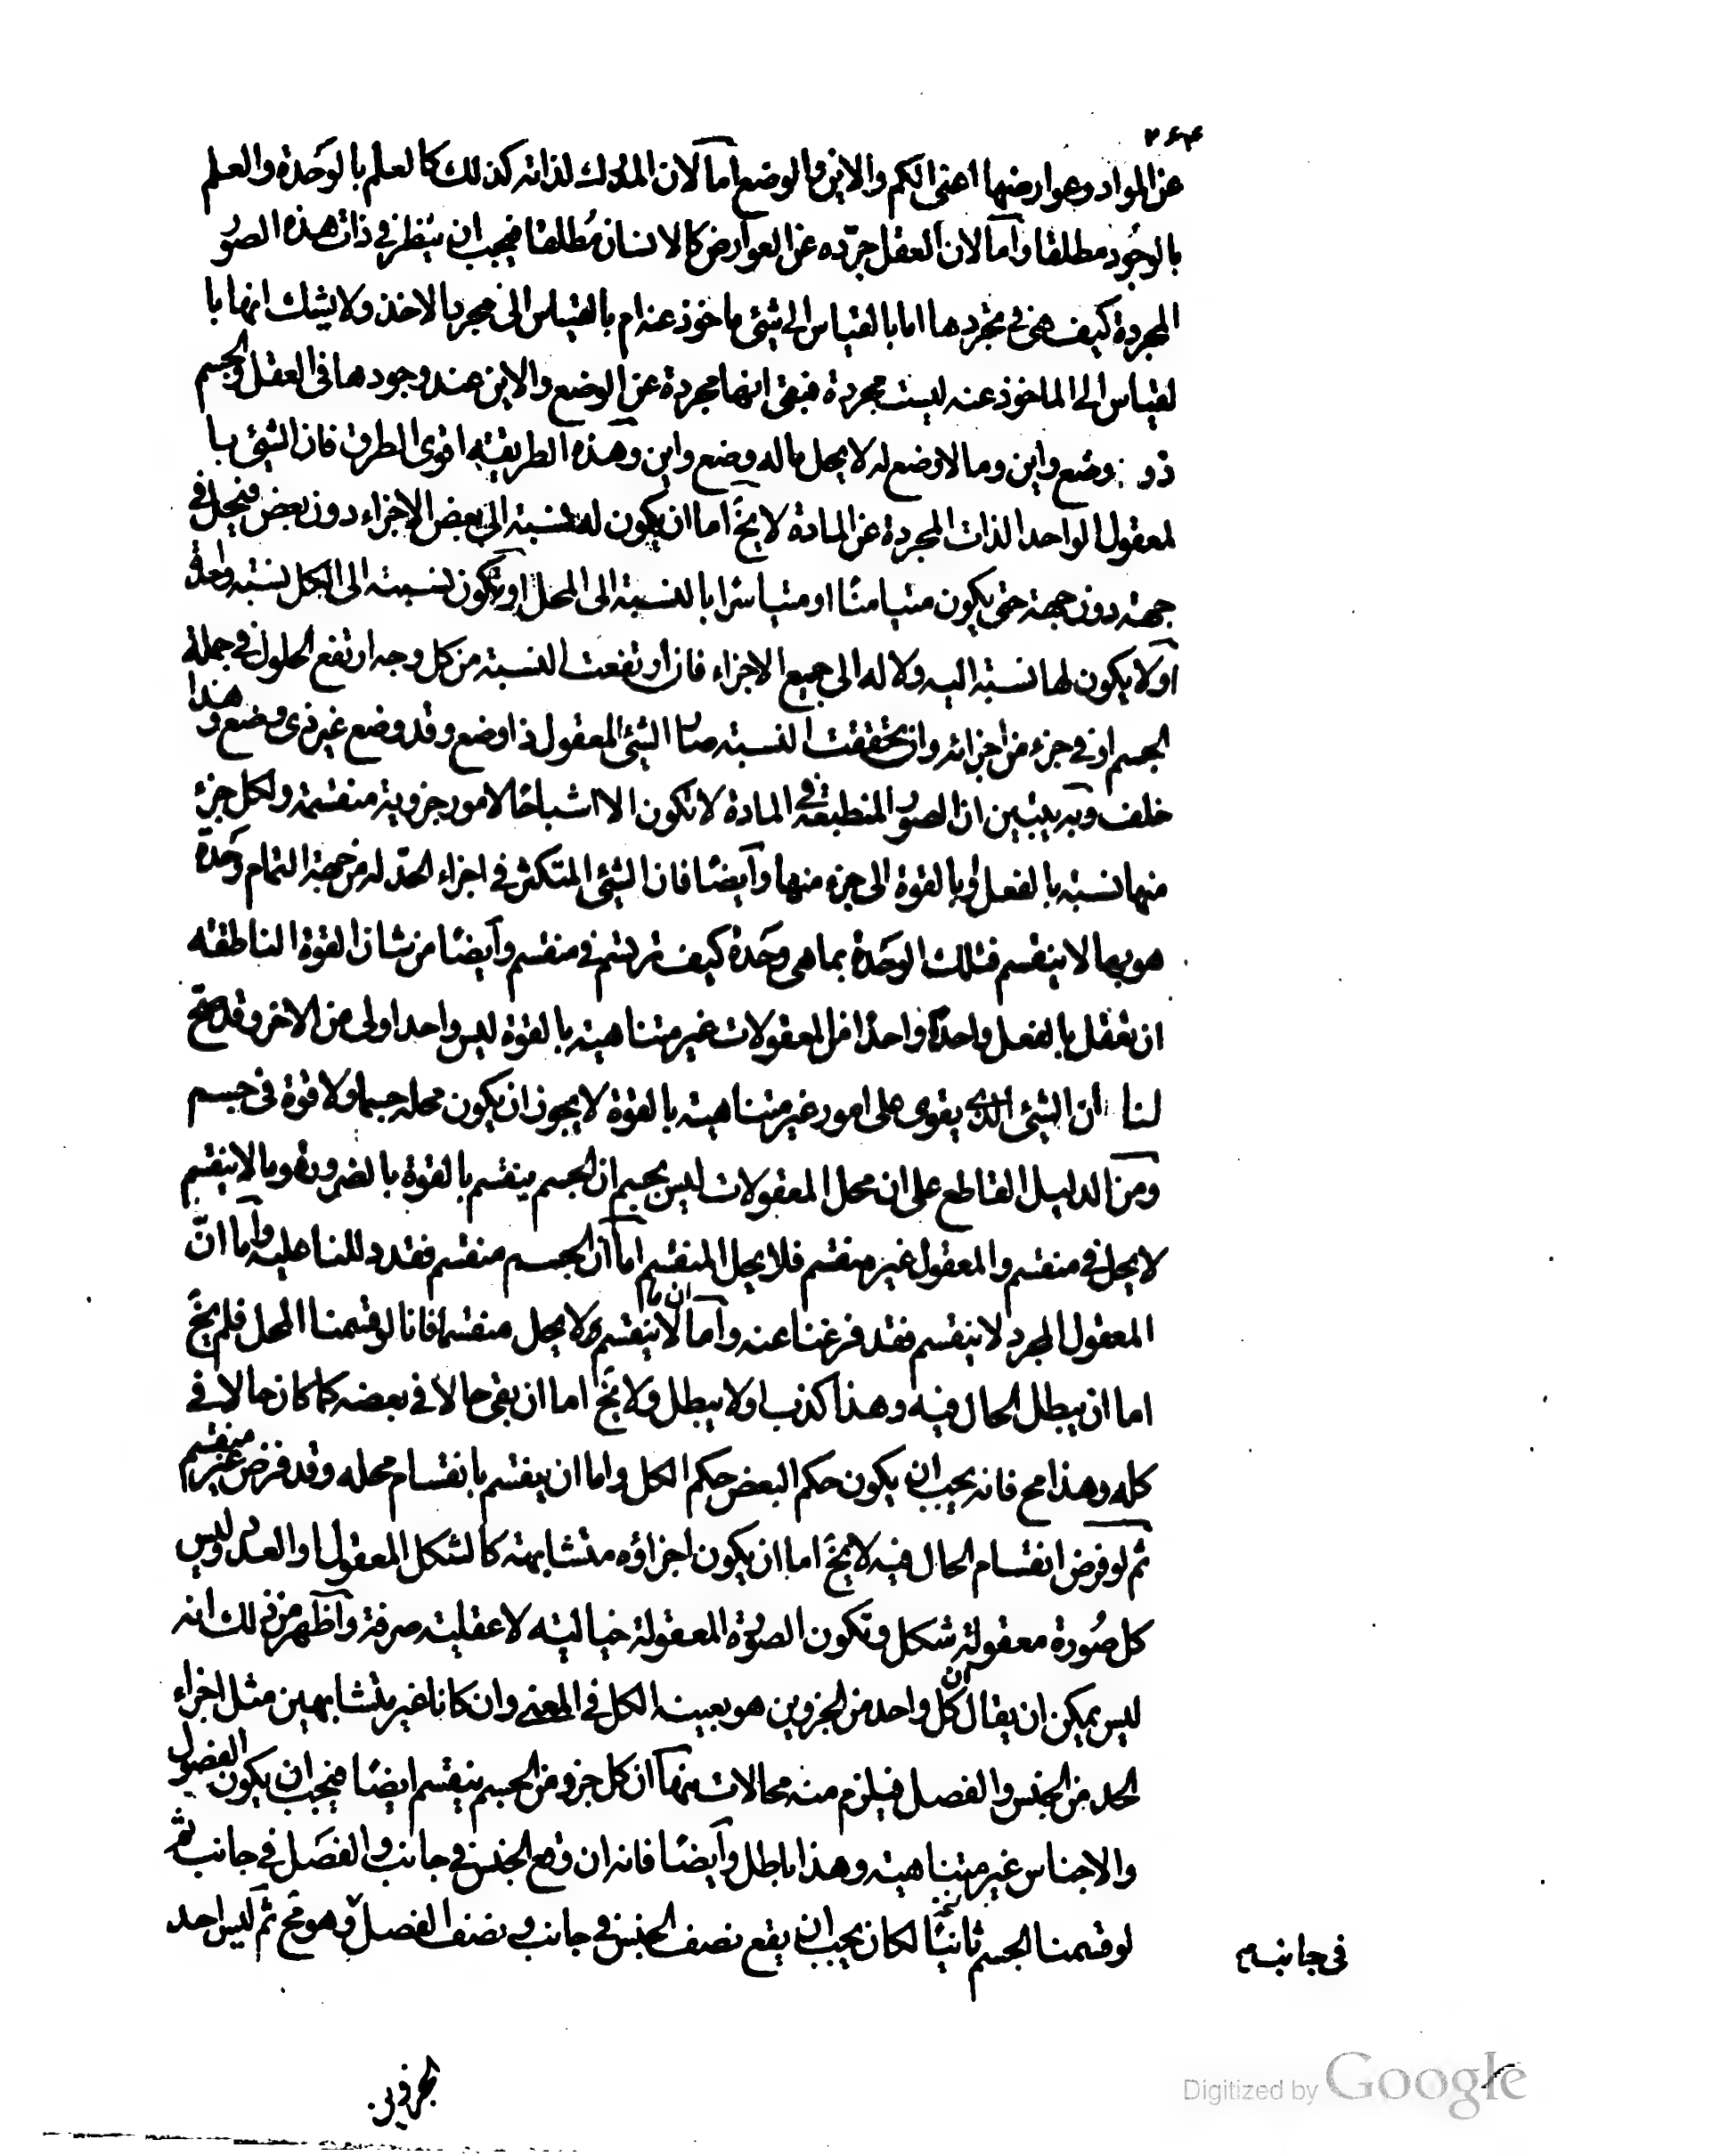 ٢٦٤
عن المواد وعوارضها اعنى الكم والاين والوضع اما لان المدرك لذاته كذلك كالعلم بالوحدة والعلم
بالوجود مطلقا واما لان العقل جرّده عن العوارض كالانسان مُطلقا فيجب ان يُنظر في ذات هذه الصور
المجردة كيف هي في تجردها اما بالقياس الى شئ ماخوذ عنه ام بالقياس الى مجرد الاخذ ولا يشك انها با
لقياس الى الماخوذ عنه ليست مجردة فبقى انها مجردة عن الوضع والاين عند وجودها في العقل والجسم
ذو وضع واين وما لا وضع له لا يحل ما له وضع واين وهذه الطريقة اقوى الطرق فان الشئ با
لمعقول الواحد الذات المجردة عن المادة لا يخ اما ان يكون له نسبة الى بعض الاجزاء دون بعض فيحل في
جهة دون جهة حتى يكون متيامنًا او متياسرا بالنسبة الى المحل او تكون نسبته الى الكل نسبة واحدة
او لا يكون لها نسبة اليه ولا له الى جميع الاجزاء فان ارتفعت النسبة من كل وجه ارتفع الحلول في جملة
الجسم او في جزء من اجزائه وان تحققت النسبة صار الشئ المعقول ذا وضع وقد وضع غير ذى وضع وهذا
خلف وبه يتبين ان الصور المنطبعة في المادة لا تكون الا اشباحًا لامور جزوية منقسمة ولكل جزء
منها نسبة بالفعل او بالقوة الى جزء منها وايضًا فان الشئ المتكثر في اجزاء الحدّ له من جهة التمام وحدة
هو بها لا ينقسم فتلك الوحدة بما هي وحدة كيف ترتسم في منقسم وايضًا من شان القوة الناطقة
ان تعقل بالفعل واحدًا واحدًا من المعقولات غير متناهية بالقوة ليس واحد اولى من الاخر وقد صح
لنا ان الشئ الذي يقوى على امور غير متناهية بالقوة لا يجوز ان يكون محله جسما ولا قوة في جسم
ومن الدليل القاطع على ان محل المعقولات ليس بجسم ان الجسم ينقسم بالقوة بالضرورة وما لا ينقسم
لا يحل في منقسم والمعقول غير منقسم فلا يحل المنقسم اما ان الجسم منقسم فقد دللنا عليه واما انّ
المعقول المجرد لا ينقسم فقد فرغنا عنه واما ان ما لا ينقسم لا يحل منقسما فانا لو قسمنا المحل فلم يخ
اما ان يبطل الحال فيه وهذا كذب او لا يبطل ولا يخ اما ان بقى حالا في بعضه كما كان حالا في
كله وهذا مح فانه يجب ان يكون حكم البعض حكم الكل واما ان ينقسم بانقسام محله وقد فرض غير منقسم
ثم لو فرض انقسام الحال فيه لا يخ اما ان يكون اجزاؤه متشابهة كالشكل المعقول او العدد وليس
كل صُورة معقولة شكل وتكون الصورة المعقولة خيالية لا عقلية صرفة واظهر من ذلك انه
ليس يمكن ان يقال ان كل واحد من الجزوين هو بعينه الكل في المعنى وان كانا غير متشابهين مثل اجزاء
الحد من الجنس والفصل فيلزم منه محالات منها ان كل جزو من الجسم ينقسم ايضًا فيجب ان يكون الفصول
والاجناس غير متناهية وهذا باطل وايضًا فانه ان وقع الجنس في جانب والفصَل في جانب ثم
لو قسمنا الجسم ثانيًا لكان يجب ان يقع نصف الجنس في جانب ونصف الفصل وهو مح ثم ليس احد
في جانب
الجزوين
Digitized by Google